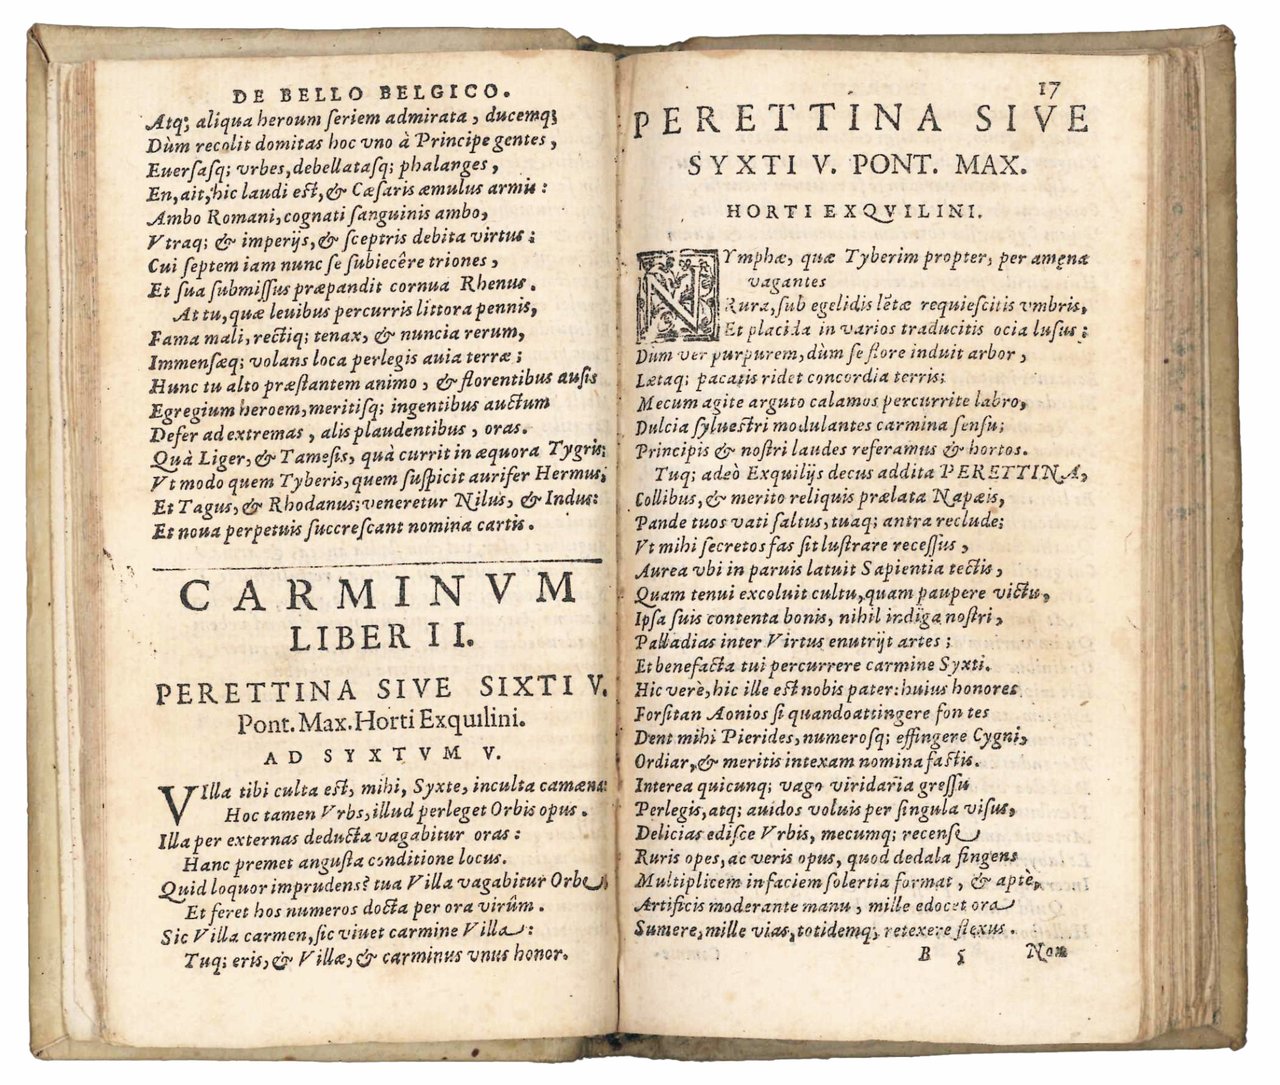 DE BELLO BELGICO.
Atq; aliqua heroum ſeriem admirata, ducemq;
Dùm recolit domitas hoc vno à Principe gentes,
Euerſaſq; vrbes, debellataſq; phalanges,
En, ait, hic laudi eſt, & Cæſaris æmulus armis:
Ambo Romani, cognati ſanguinis ambo,
Vtraq; & imperijs, & ſceptris debita virtus;
Cui ſeptem iam nunc ſe ſubiecêre triones,
Et ſua ſubmiſſus præpandit cornua Rhenus.
At tu, quæ leuibus percurris littora pennis,
Fama mali, rectiq; tenax, & nuncia rerum,
Immenſæq; volans loca perlegis auia terræ;
Hunc tu alto præſtantem animo, & florentibus auſis
Egregium heroem, meritiſq; ingentibus auctum
Defer ad extremas, alis plaudentibus, oras.
Quà Liger, & Tameſis, quà currit in æquora Tygris;
Vt modo quem Tyberis, quem ſuſpicit aurifer Hermus;
Et Tagus, & Rhodanus; veneretur Nilus, & Indus:
Et noua perpetuis ſuccreſcant nomina cartis.
CARMINVM
LIBER II.
PERETTINA SIVE SIXTI V.
Pont. Max. Horti Exquilini.
AD SYXTVM V.
VIlla tibi culta eſt, mihi, Syxte, inculta camæna:
Hoc tamen Vrbs, illud perleget Orbis opus.
Illa per externas deducta vagabitur oras:
Hanc premet anguſta conditione locus.
Quid loquor imprudens? tua Villa vagabitur Orbe,
Et feret hos numeros docta per ora virûm.
Sic Villa carmen, ſic viuet carmine Villa:
Tuq; eris, & Villæ, & carminis vnus honor.
17
PERETTINA SIVE
SYXTI V. PONT. MAX.
HORTI EXQVILINI.
NYmphæ, quæ Tyberim propter, per amęna
vagantes
Rura, ſub egelidis lętæ requieſcitis vmbris,
Et placida in varios traducitis ocia luſus;
Dùm ver purpurem, dùm ſe flore induit arbor,
Lætaq; pacatis ridet concordia terris;
Mecum agite arguto calamos percurrite labro,
Dulcia ſylueſtri modulantes carmina ſenſu;
Principis & noſtri laudes referamus & hortos.
Tuq; adeò Exquilijs decus addita PERETTINA,
Collibus, & merito reliquis prælata Napæis,
Pande tuos vati ſaltus, tuaq; antra reclude;
Vt mihi ſecretos fas ſit luſtrare receſſus,
Aurea vbi in paruis latuit Sapientia tectis,
Quam tenui excoluit cultu, quam paupere victu,
Ipſa ſuis contenta bonis, nihil indiga noſtri,
Palladias inter Virtus enutrijt artes;
Et benefacta tui percurrere carmine Syxti.
Hic verè, hic ille eſt nobis pater: huius honores
Forſitan Aonios ſi quando attingere fontes
Dent mihi Pierides, numeroſq; effingere Cygni,
Ordiar, & meritis intexam nomina faſtis.
Interea quicunq; vago viridaria greſſu
Perlegis, atq; auidos voluis per ſingula viſus,
Delicias ediſce Vrbis, mecumq; recenſe
Ruris opes, ac veris opus, quod dedala fingens
Multiplicem in faciem ſolertia format, & aptè,
Artificis moderante manu, mille edocet ora
Sumere, mille vias, totidemq; retexere flexus.
B 5 Non